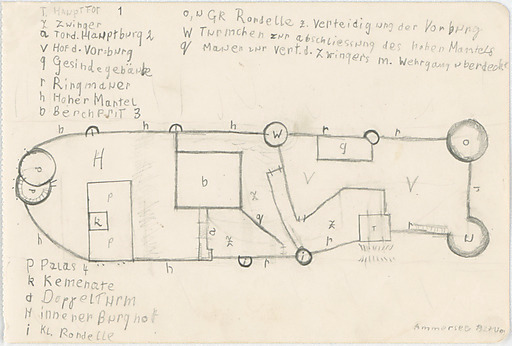 T. Haupttor 1
Z Zwinger
a Tor d. Hauptburg 2
V Hof d. Vorburg
g Gesindegebäude
r Ringmauer
h Hoher Mantel
b Berchfrit 3
o, u GR Rondelle z. Verteidigung der Vorburg
W Türmchen zur abschliessung des hohen Mantels
q Mauer zur Vert. d. Zwingers m. Wehrgang überdeckt
b
h
h
W
r
r
o
H
g
p
b
z
V
V
r
p
p
k
a
q
z
z
r
T
r
u
h
p
h
i
r
i
p Palas 4
k Kemenate
d Doppelturm
H innener Burghof
i kl. Rondelle